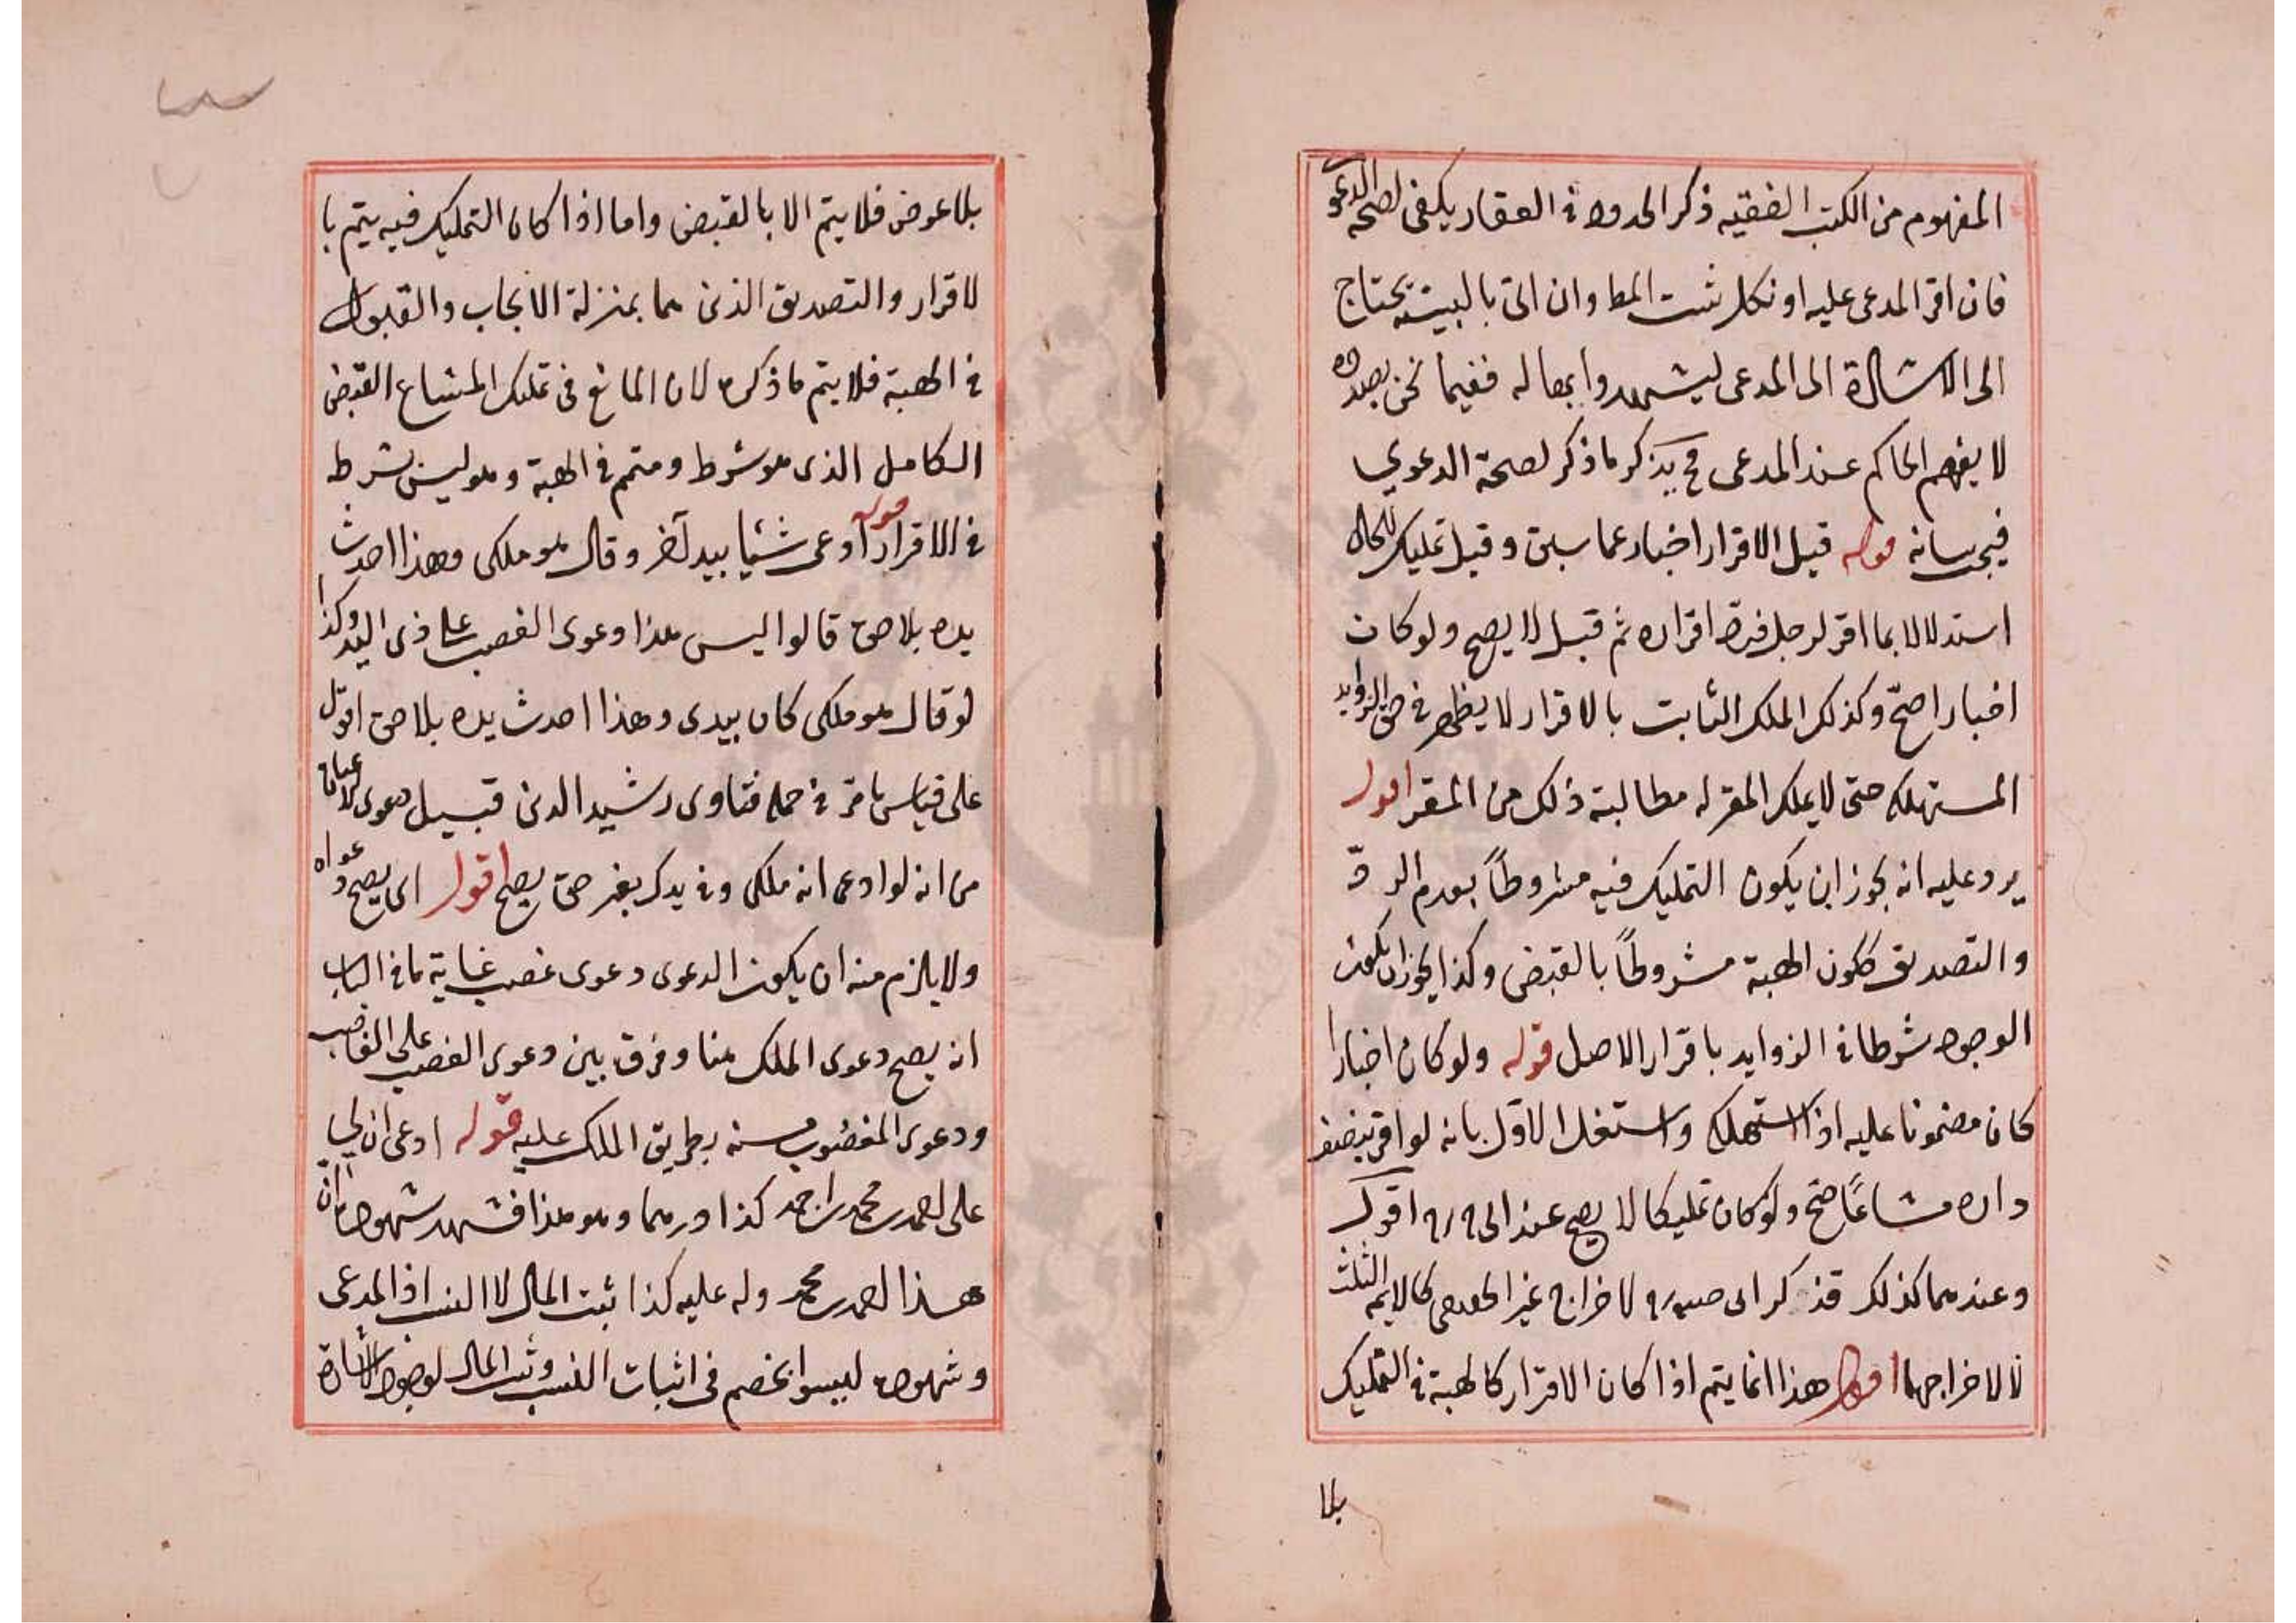 المفهوم من الكتب الفقيه ذكر الحدود في العقار يكفى لصحة الدعوى
فان اقر المدعى عليه او نكل ثبت المط وان اتى بالبينة يحتاج
الى الاشارة الى المدعى ليشهدوا بها له ففيما نحن بصدده
لا يفهم الحاكم عند المدعى فح يذكر ما ذكر لصحة الدعوي
فيجب بيانه قوله قيل الاقرار اخبار عما سبق وقيل تمليك للحال
استدلالا بما اقر لرجل فردّ اقراره ثم قبل لا يصح ولو كان
اخبارا صحّ وكذلك الملك الثابت بالاقرار لا يظهر في حق الزوايد
المستهلكه حتى لا يملك المقر له مطالبة ذلك من المقر اقول
يرد عليه انه يجوز ان يكون التمليك فيه مشروطاً بعدم الردّ
والتصديق ككون الهبة مشروطاً بالقبض وكذا يجوز ان يكون
الوجود شرطا في الزوايد باقرار الاصل قوله ولو كان اخبارا
كان مضمونا عليه اذا استهلك واستدل الاول بانه لو اقر بنصف
داره مشاعًا صح ولو كان تمليكا لا يصح عند ابى ح ره اقول
وعندهما كذلك فذكر ابى حنيفه ره لاخراج غير كالايمة الثلث
لا لاخراجهما اقول هذا انما يتم اذا كان الاقرار كالهبة في التمليك
بلا
بلا عوض فلا يتم الا بالقبض واما اذا كان التمليك فيه يتم با
لاقرار والتصديق الذين هما بمنزلة الايجاب والقبول
في الهبة فلا يتم ما ذكره لان المانع فى تمليك المشاع القبض
الكامل الذى هو شرط ومتمم في الهبة وهو ليس بشرط
في الاقرار قوله ادعى شيئا بيد آخر وقال هو ملكى وهذا احدث
يده بلا حق قالوا ليس هذا دعوى الغصب على ذى اليد وكذا
لو قال هو ملكى كان بيدى وهذا احدث يده بلا حق اقول
على قياس ما مر في فتاوى رشيد الدين قبيل دعوى
من انه لو ادعى انه ملكى وفي يدك بغير حق يصح اقول اى يصح دعواه
ولا يلزم منه ان يكون الدعوى دعوى غصب غاية ما في الباب
انه يصح دعوى الملك هنا وفرق بين دعوى الغصب على الغاصب
ودعوى المغصوب منه بطريق الملك عليه قوله ادعى ان لي
على احمد بن محمد بن احمد كذا درهما وهو هذا فشهد شهوده ان
هذا احمد بن محمد وله عليه كذا ثبت المال لا النسب اذ المدعى
وشهوده ليسوا بخصم فى اثبات النسب وثبت المال لوجود الاشارة